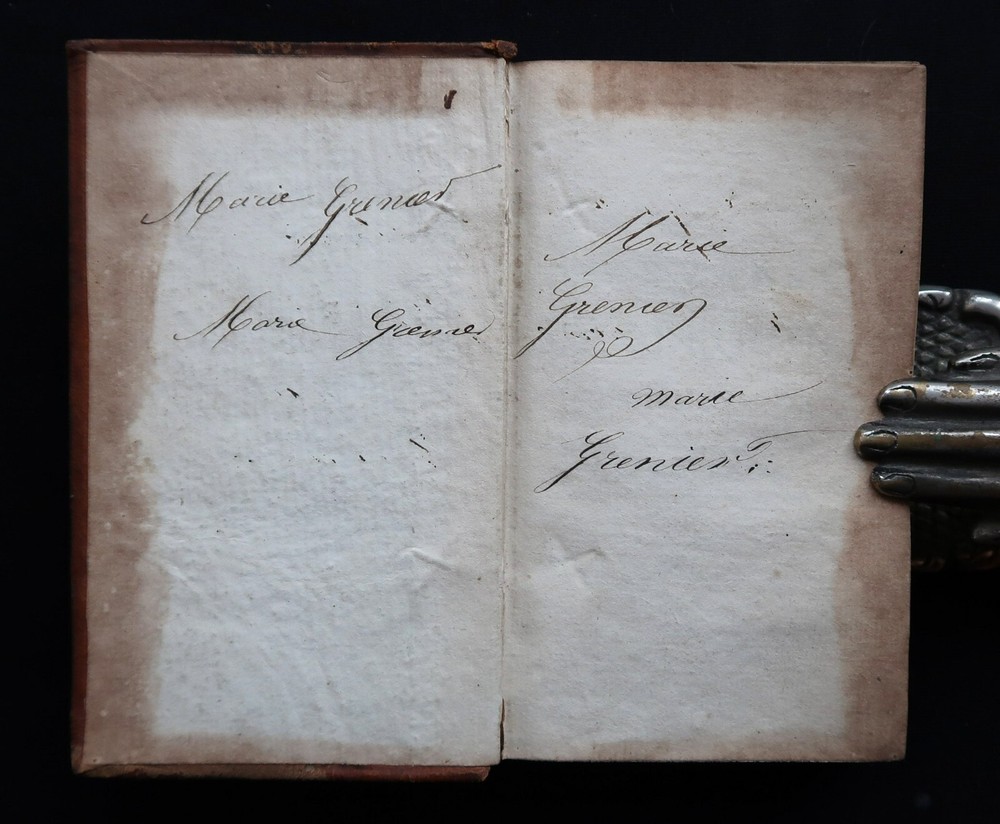 Marie Grenier
Marie Grenier
Marie
Grenier
marie
Grenier